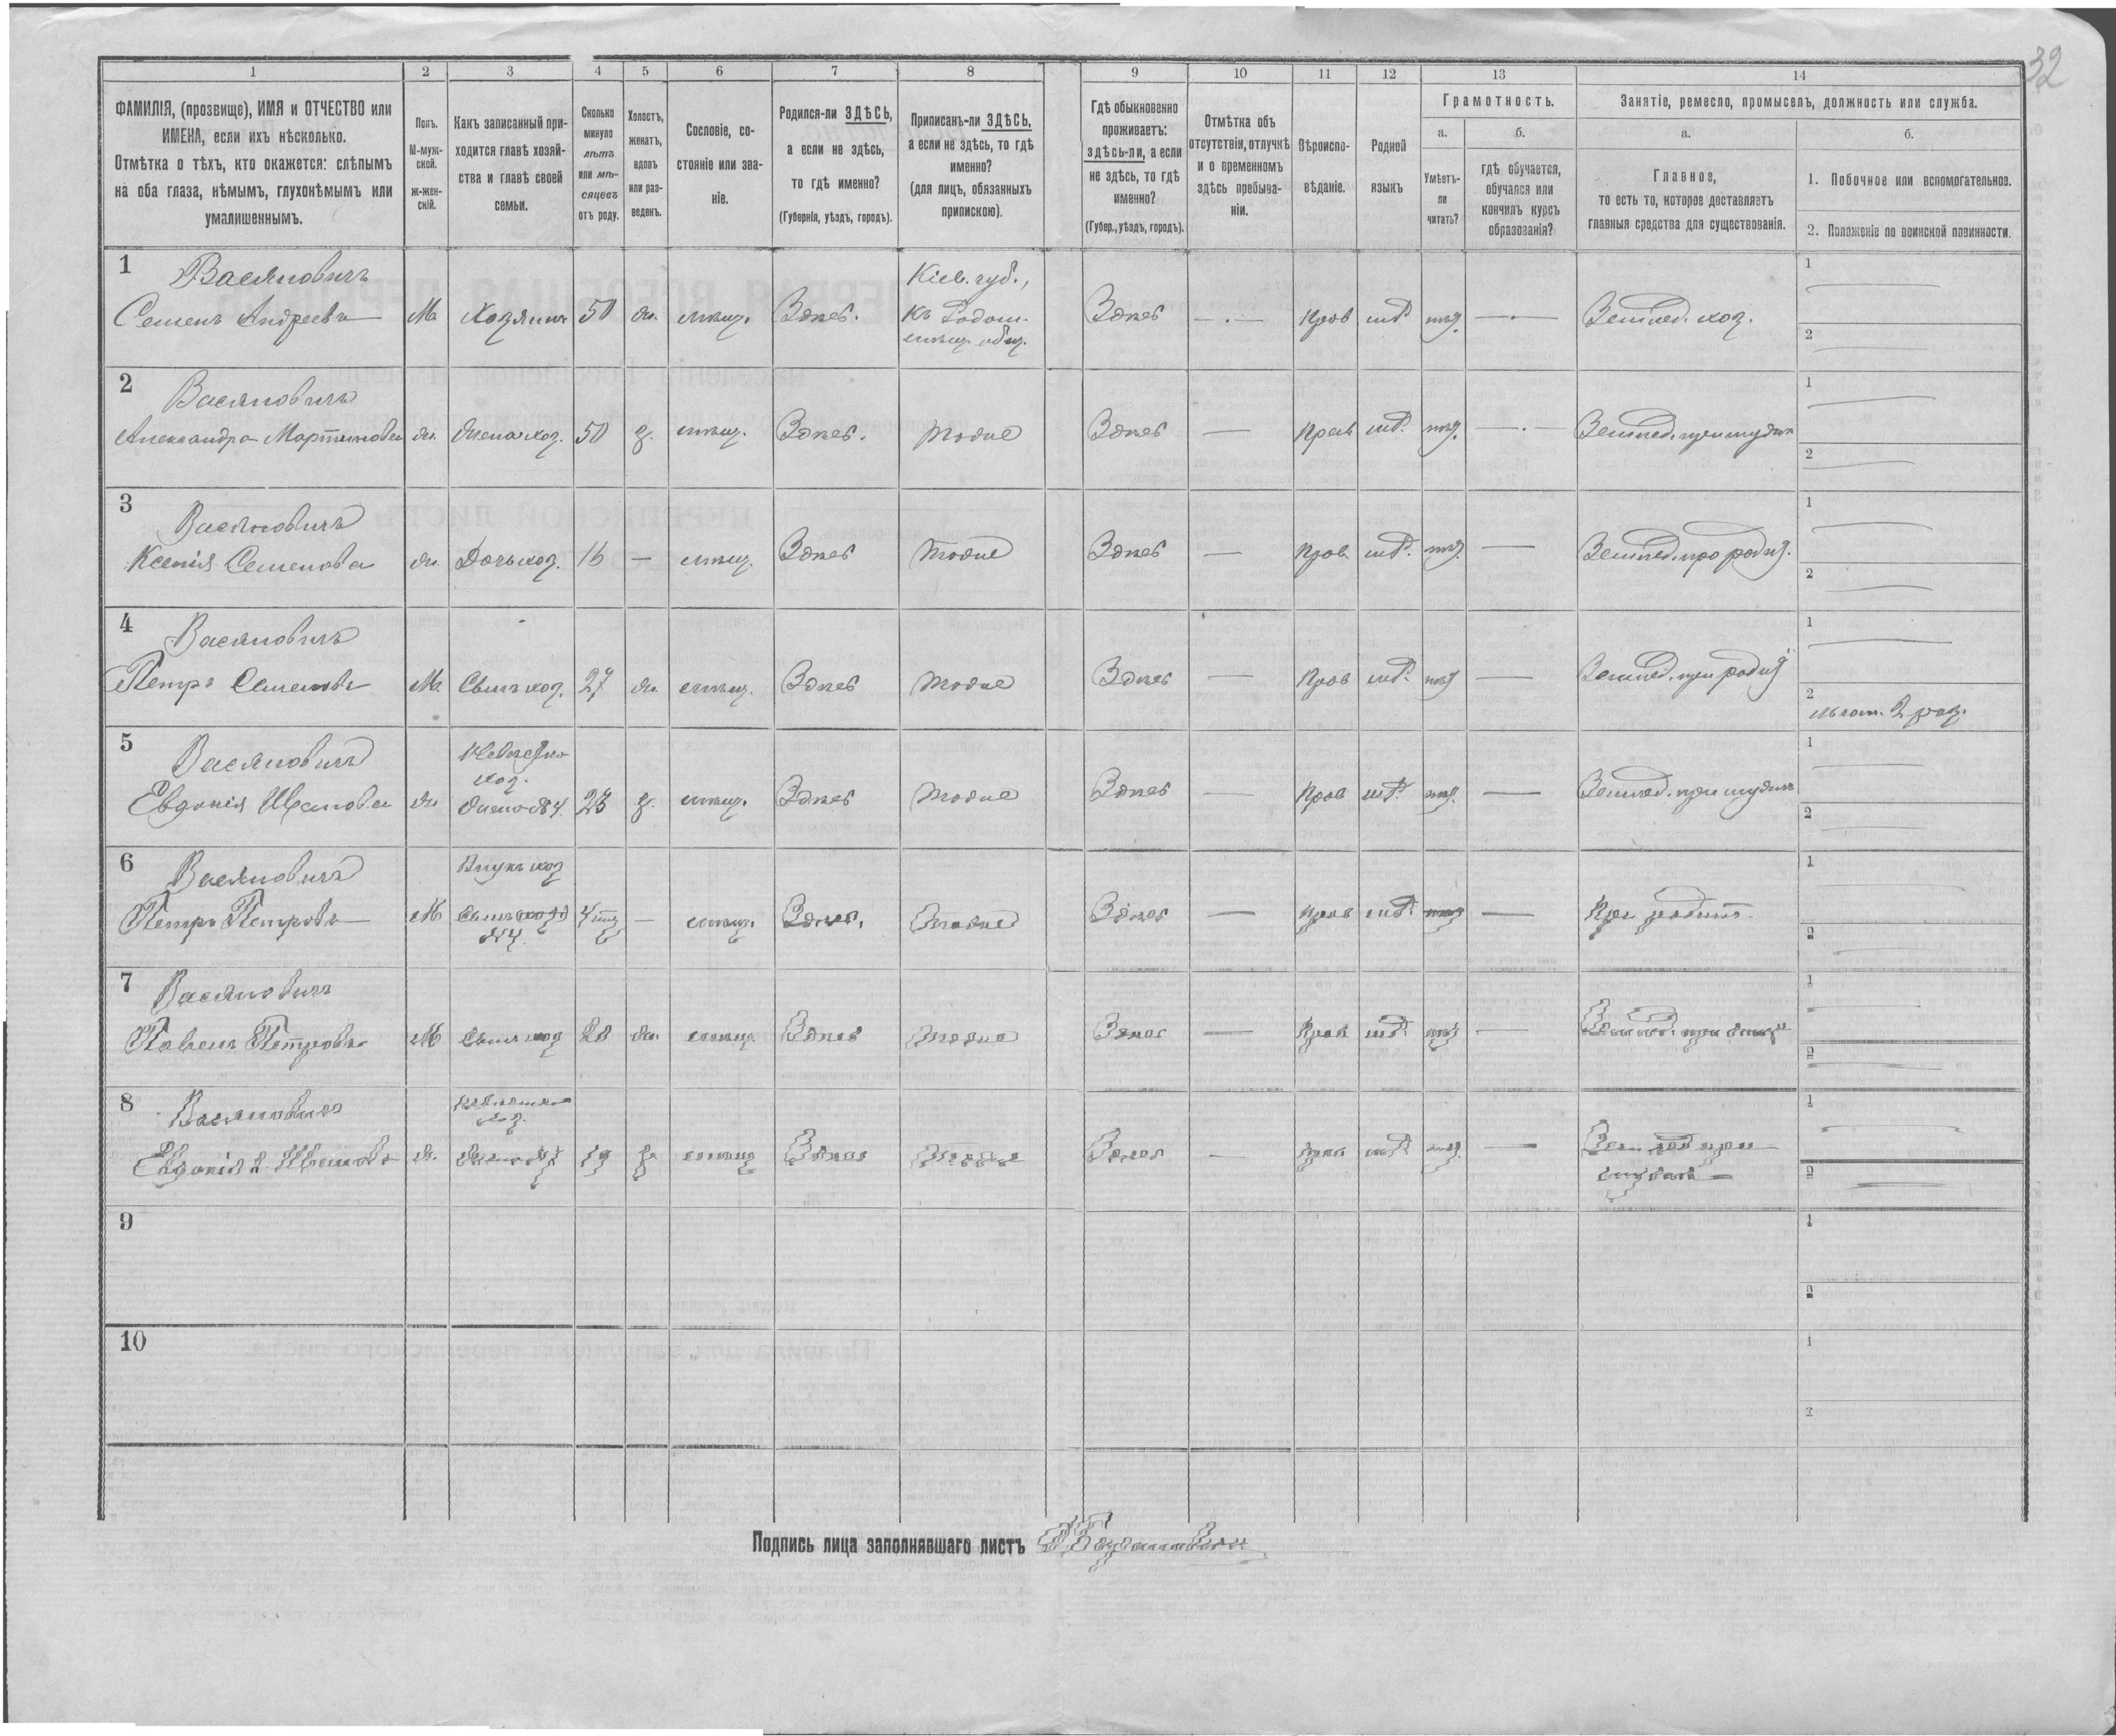 32
1 2 3 4 5 6 7 8 9 10 11 12 13 14
ФАМИЛІЯ, (прозвище), ИМЯ и ОТЧЕСТВО или
ИМЕНА, если ихъ нѣсколько.
Отмѣтка о тѣхъ, кто окажется: слѣпымъ
на оба глаза, нѣмымъ, глухонѣмымъ или
умалишеннымъ.
Полъ.
М-муж-
ской.
ж-жен-
скій.
Какъ записанный при-
ходится главѣ хозяй-
ства и главѣ своей
семьи.
Сколько
минуло
лѣтъ
или мѣ-
сяцевъ
отъ роду.
Холостъ,
женатъ,
вдовъ
или раз-
веденъ.
Сословіе, со-
стояніе или зва-
ніе.
Родился-ли ЗДѢСЬ,
а если не здѣсь,
то гдѣ именно?
(Губернія, уѣздъ, городъ).
Приписанъ-ли ЗДѢСЬ,
а если не здѣсь, то гдѣ
именно?
(для лицъ, обязанныхъ
припискою).
Гдѣ обыкновенно
проживаетъ:
здѣсь-ли, а если
не здѣсь, то гдѣ
именно?
(Губер., уѣздъ, городъ).
Отмѣтка объ
отсутствіи, отлучкѣ
и о временномъ
здѣсь пребыва-
ніи.
Вѣроиспо-
вѣданіе.
Родной
языкъ
Грамотность.
а.
Умѣетъ-
ли
читать?
б.
гдѣ обучается,
обучался или
кончилъ курсъ
образованія?
Занятіе, ремесло, промыселъ, должность или служба.
а.
Главное,
то есть то, которое доставляетъ
главныя средства для существованія.
б.
1. Побочное или вспомогательное.
2. Положеніе по воинской повинности.
1 Васяновичъ Кіев. губ., 1
Семенъ Андреевъ М. Хозяинъ 50 ж. мѣщ. Здѣсь. Здѣсь — Прав Землед. хоз.
мѣщ. общ. 2
2 Васяновичъ 1
Александра Мартинова ж. Жена хоз. 50 з. мѣщ. Здѣсь. Тоже Здѣсь — Прав Землед. при мужѣ
2
3 Васяновичъ 1
Ксенія Семенова ж. Дочь хоз. 16 — мѣщ. Здѣсь Тоже Здѣсь — Прав —
2
4 Васяновичъ 1
Петръ Семеновъ М. Сынъ хоз. 27 ж. мѣщ. Здѣсь Тоже Здѣсь — Прав —
2
льгот. 2 раз.
5 Васяновичъ Невѣстка 1
хоз.
Евдокія Иванова ж. Жена №4. 23 з. мѣщ. Здѣсь Тоже Здѣсь — Прав — Землед. при мужѣ
2
6 Васяновичъ Внукъ хоз 1
Петръ Петровъ М Сынъ — мѣщ. Здѣсь. Тоже Здѣсь — Прав — При родит.
№4. 2
7 Васяновичъ 1
Павелъ Петровъ М Сынъ хоз 20 ж. мѣщ. Здѣсь Тоже Здѣсь — Прав — Землед. при отцѣ
2
8 Васяновичъ Невѣстка 1
хоз.
Евдокія Иванова ж. Жена №7 19 з. мѣщ Здѣсь Тоже Здѣсь — прав — Землед при
мужѣ 2
9 1
2
10 1
2
Подпись лица заполнявшаго листъ